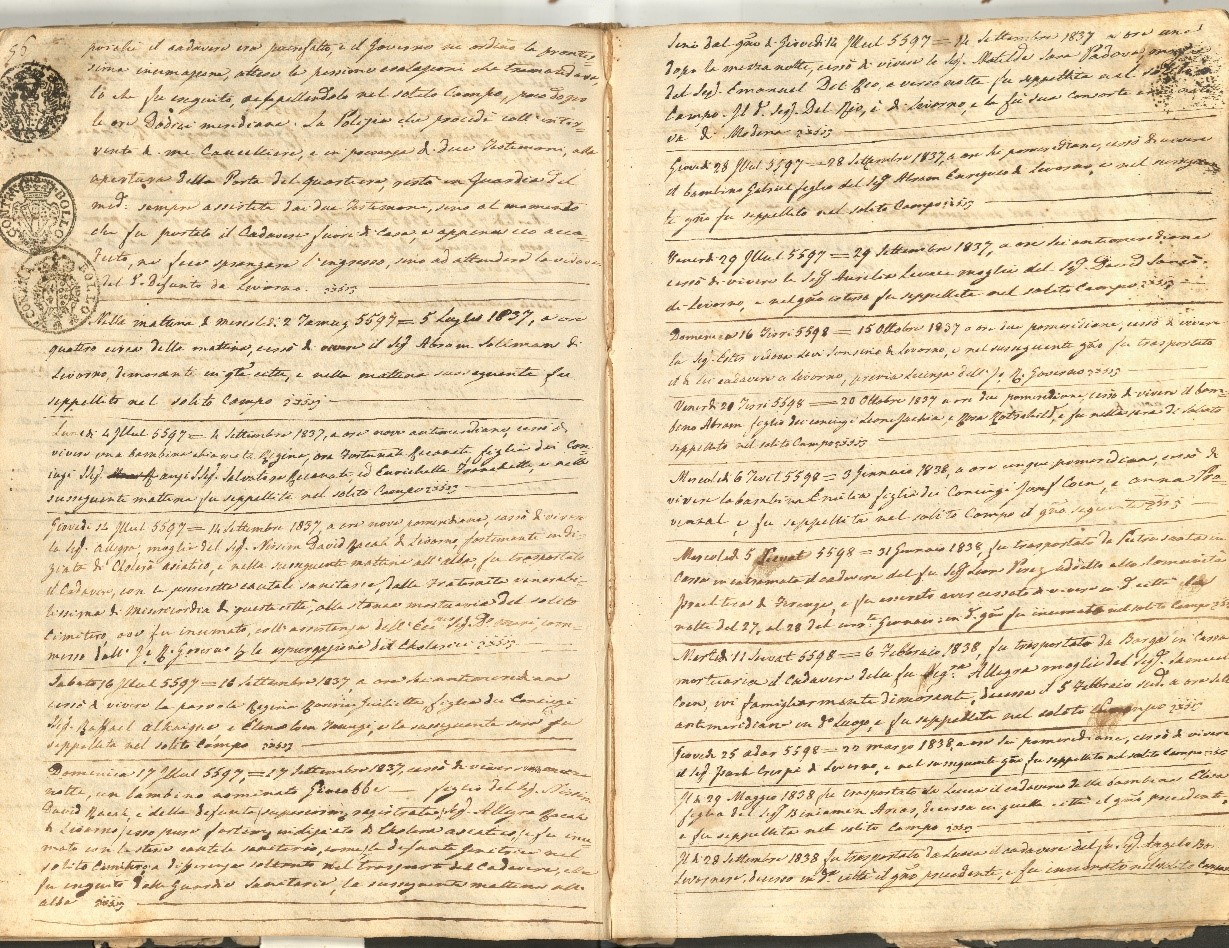 56
poichè il cadavere era putrefatto, e il Governo ne ordinò la prontis-
sima inumazione, atteso le pessime esalazioni che tramandava,
lo che fu eseguito, seppellendolo nel solito Campo, poco dopo
le ore Dodici meridiane. La Polizia che procedè coll'inter-
vento di me Cancelliere, e in presenza di due Testimoni, alla
apertura della Porta del quartiere, restò in Guardia del
med.º sempre assistita dai due Testimoni, sino al momento
che fu portato il Cadavere fuori di Casa, e appena ciò acca-
duto, ne fece spranzare l'ingresso, sino ad attendere la vedova
del d.º Defunto da Livorno.
Nella mattina di mercoledì 2 Tamuz 5597 = 5 Luglio 1837, a ore
quattro circa della mattina, cessò di vivere il Sig.r Abram Soliman di
Livorno, dimorante in q.ta città, e nella mattina susseguente fu
seppellito nel solito Campo
Lunedì 4 Illul 5597 = 4 Settembre 1837, a ore nove antimeridiane, cessò di
vivere una bambina chiamata Regina, ora Fortunata Recanati, figlia dei Con-
iugi Sig.r Salvatore Recanati, ed Enrichetta Franchetti, e nella
susseguente mattina fu seppellita nel solito Campo
Giovedì 14 Illul 5597 = 14 Settembre 1837, a ore nove pomeridiane, cessò di vivere
la Sig.a Allegra, moglie del Sig.r Nissim David Racah di Livorno fortemente indi-
ziata di Cholera asiatico, e nella susseguente mattina all'alba, fu trasportato
il Cadavere, con le prescritte cautele sanitarie, dalla Fraternita venerabi-
lissima di Misericordia di questa città, alla stanza mortuaria del solito
Cimitero, ove fu inumato, coll'assistenza dell'Ecc.mo Sig.r D. com-
messo dall'I. e R. Governo la espurgazione dei Cholerici
Sabato 16 Illul 5597 = 16 Settembre 1837, a ore sei antimeridiane
cessò di vivere la piccola Regina Giulietta, figlia dei Coniugi
Sig.r Raffael Alkaisso e Elena Coen Taungi, e la susseguente sera fu
seppellita nel solito Campo
Domenica 17 Illul 5597, = 17 Settembre 1837, cessò di vivere
notte, un bambino nominato Giacobbe figlio del Sig.r Nissim
David Racah, e della defunta (superiormente registrata) Sig.a Allegra Racah
di Livorno, esso pure fortemente indiziato di Cholera asiatico, e fu inu-
mato con le stesse cautele sanitarie, come la defunta genitrice nel
solito Campo, a differenza soltanto nel trasporto del Cadavere, che
fu eseguito dalle Guardie Sanitarie, la susseguente mattina all'
alba
CONTR BOLLO
BOLLO
Sera del g.no di Giovedì 14 Illul 5597 = 14 Settembre 1837 a ore una
dopo la mezza notte, cessò di vivere la Sig.a Matilda Sara Padova moglie
del Sig.r Emanuel Del Rio, e verso notte fu seppellita nel solito
Campo. Il d.º Sig.r Del Rio, è di Livorno, e la fu sua consorte era nati-
va di Modena
Giovedì 28 Illul 5597 = 28 Settembre 1837, a ore pomeridiane, cessò di vivere
il bambino Gabriel figlio del Sig.r Abram Enriques di Livorno, e nel susseguen-
te g.no fu seppellito nel solito Campo
Venerdì 29 Illul 5597 = 29 Settembre 1837, a ore sei antimeridiane
cessò di vivere la Sig.a Aurelia moglie del Sig.r David
di Livorno, e nel g.no istesso fu seppellita nel solito Campo
Domenica 16 Tisri 5598 = 15 Ottobre 1837 a ore due pomeridiane, cessò di vivere
la Sig.a Ester vedova Levi Sonsino di Livorno, e nel susseguente g.no fu trasportato
il di lei cadavere a Livorno, previa Licenza dell'I. e R. Governo
Venerdì 20 Tisri 5598 = 20 Ottobre 1837 a ore due pomeridiane, cessò di vivere il bam-
bino Abram figlio dei coniugi Leone e Rosa Rotschild, e fu nella sera di sabato
seppellito nel solito Campo
Mercoledì 6 Tevet 5598 = 3 Gennaio 1838, a ore cinque pomeridiane, cessò di
vivere la bambina Emilia figlia dei Coniugi Josef Coen, e Anna Pro-
venzal, e fu seppellita nel solito Campo il g.no seguente
Mercoledì 5 Scevat 5598 = 31 Gennaio 1838, fu trasportato da Pietrasanta in
Cassa incatramata il cadavere del fu Sig.r Leon Perez addetto alla Comunità
Israelitica di Firenze, e fu asserito aver cessato di vivere in d.a città la
notte del 27, al 28 del corr.te Gennaio: in d.º g.no fu inumato nel solito Campo
Martedì 11 Scevat 5598 = 6 Febbraio 1838, fu trasportato da Barga in Cassa
mortuaria il cadavere della fu Sig.ra Allegra moglie del Sig.r Samuel
Coen, ivi famigliarmente dimorante, decessa il 5 Febbraio sud.º a ore sette
antimeridiane in d.º luogo, e fu seppellita nel solito Campo
Giovedì 25 Adar 5598 = 22 marzo 1838, a ore sei pomeridiane, cessò di vivere
il Sig.r Isach Crespi di Livorno, e nel susseguente g.no fu seppellito nel solito Campo
Il dì 29 Maggio 1838 fu trasportato da Lucca il cadavere della bambina Clara
figlia del Sig.r Beniamin Arias, decessa in quella città il g.no precedente,
e fu seppellita nel solito Campo
Il dì 28 Settembre 1838 fu trasportato da Lucca il cadavere del fu Sig.r Angelo
Livornese, decesso in d.a città il g.no precedente, e fu inumato nel solito Campo